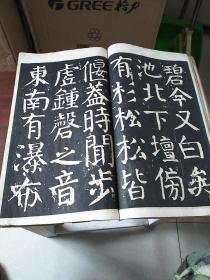 GREE 格力
碧今又白矣
池北下壇傍
有杉松松皆
偃蓋時聞步
虛鍾磬之音
東南有瀑布